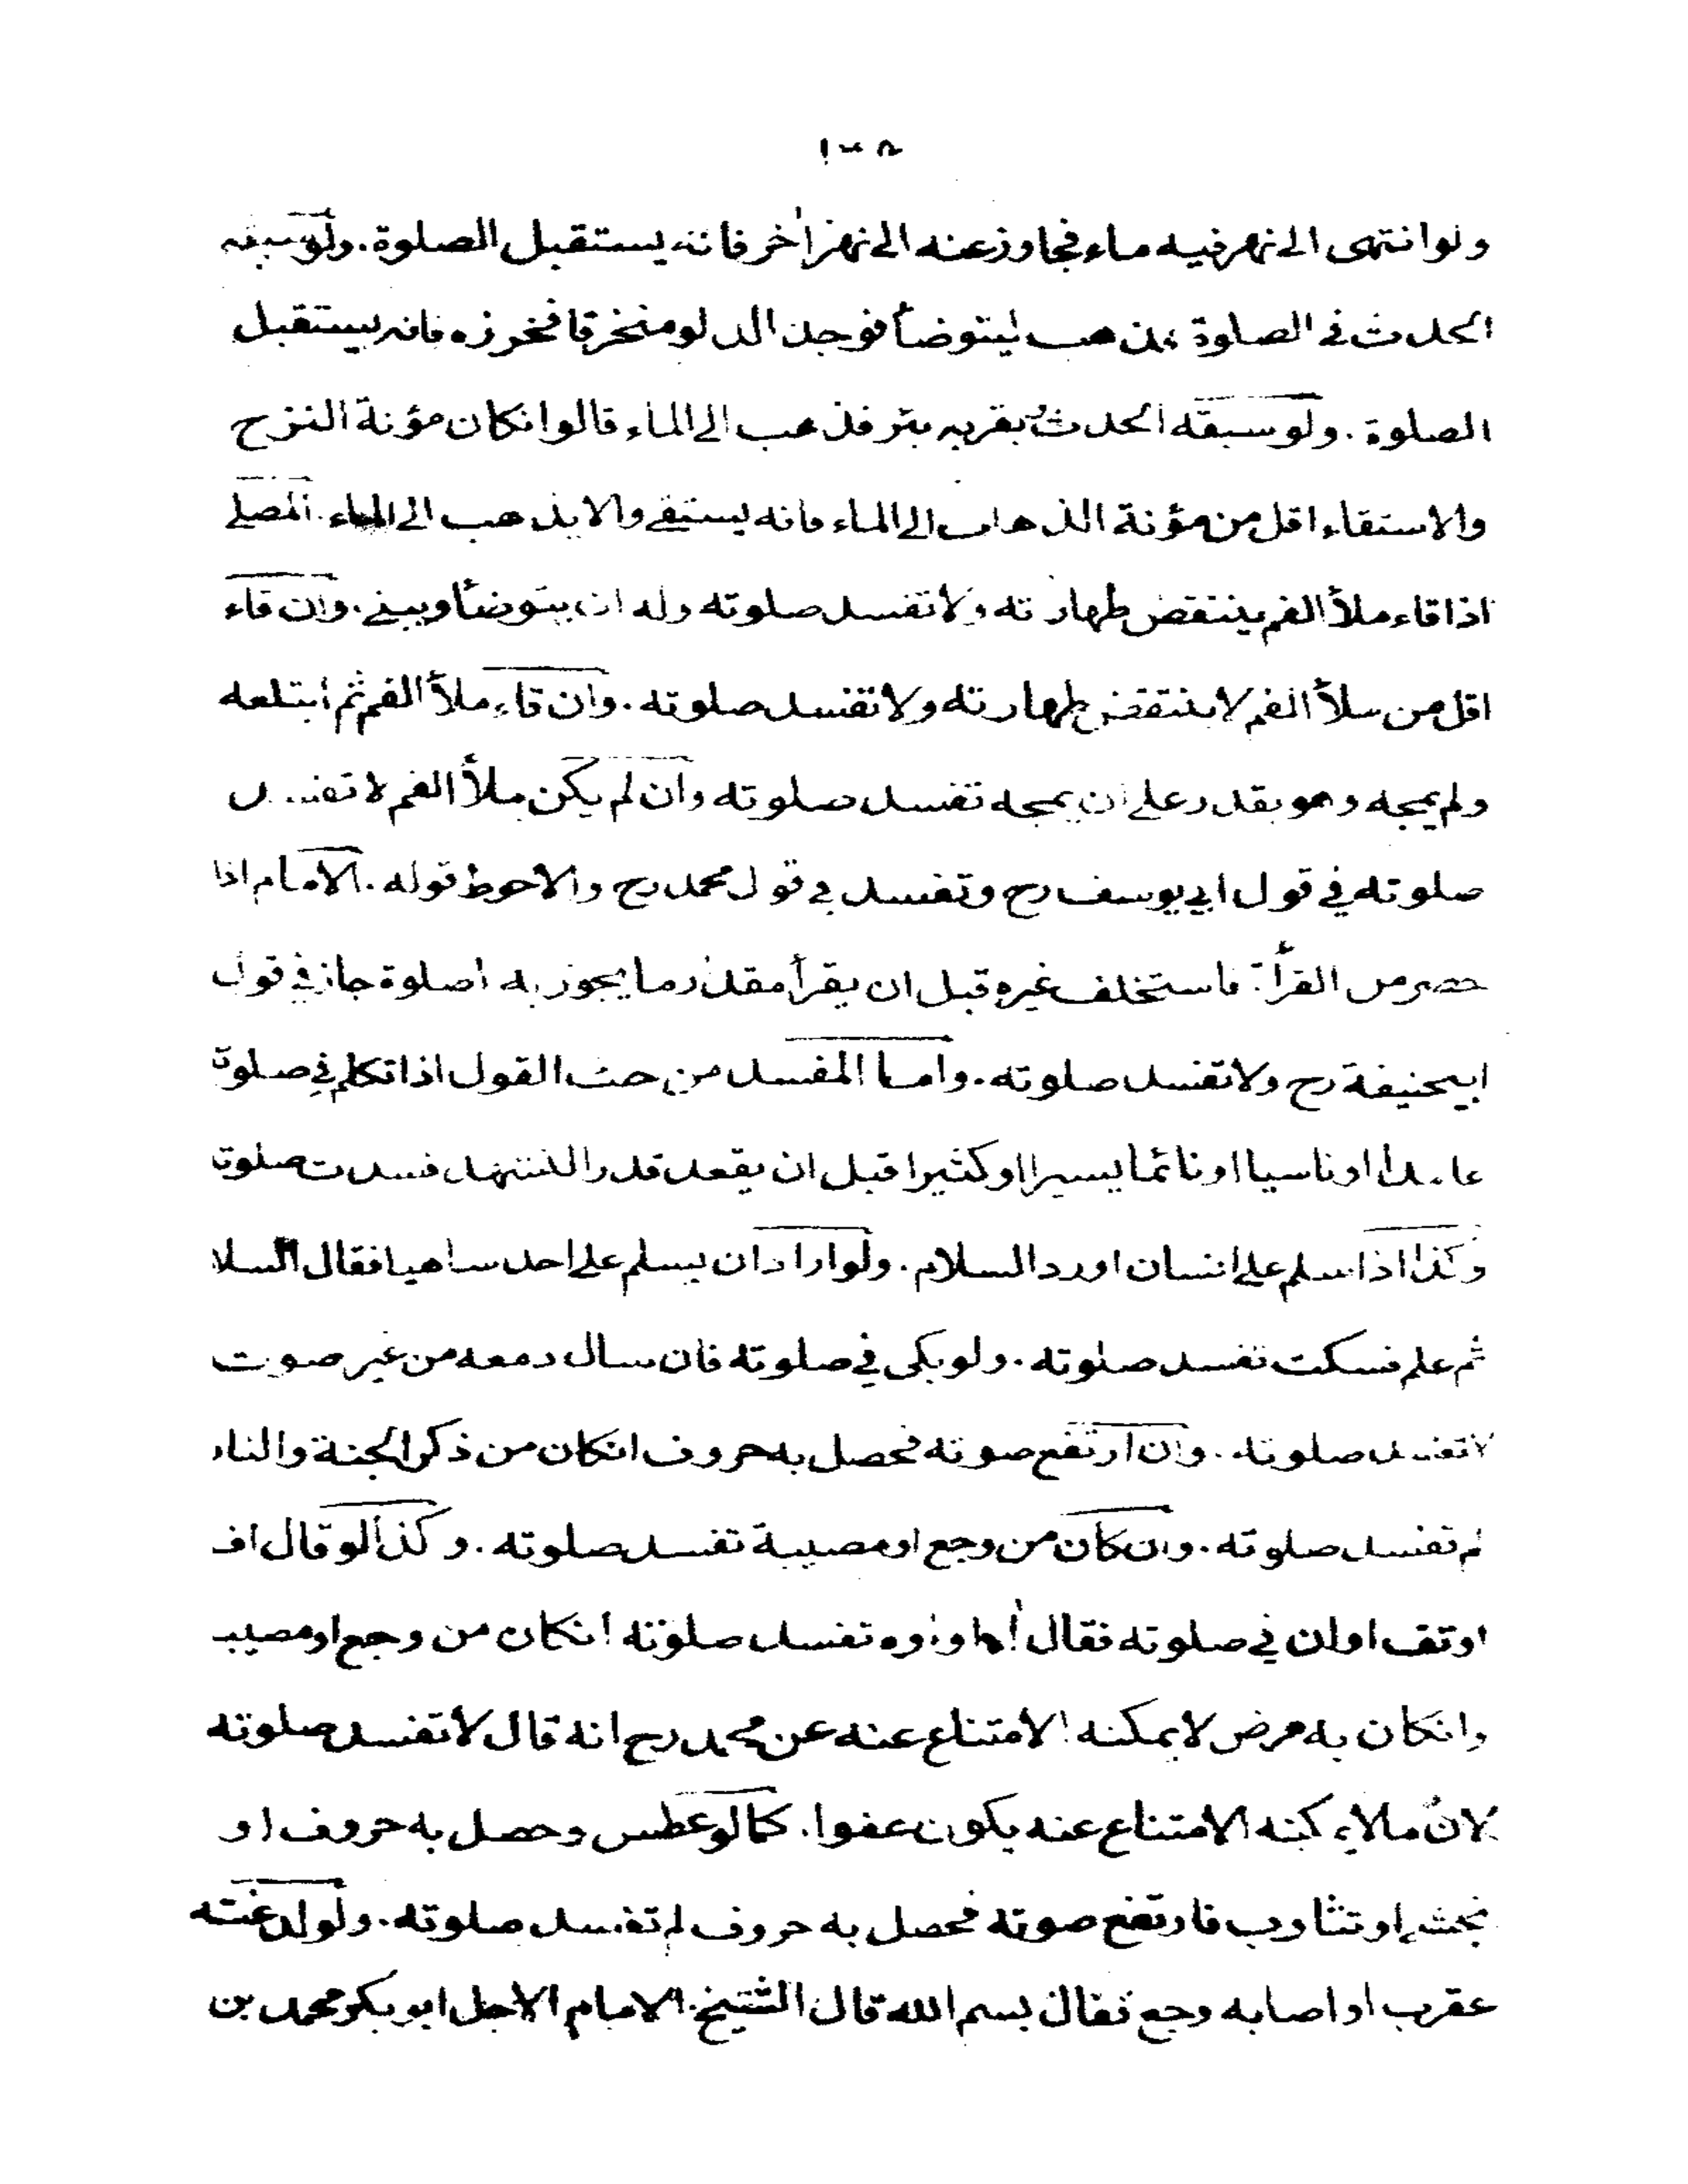 ولو انتهى الى نهر فيه ماء فجاوز عنه الى نهر اٰخر فانه يستقبل الصلوة. ولو سبقه
الحدث فى الصلوة فذهب ليتوضأ فوجد الدلو منخرقا فخرزه فانه يستقبل
الصلوة. ولو سبقه الحدث بقربه بئر فذهب الى الماء قالوا انكان مؤنة النزح
والاستقاء اقل من مؤنة الذهاب الى الماء فانه يستقى والا يذهب الى الماء. المصلى
اذا قاء ملأ الفم ينتقض طهارته ولا تفسد صلوته وله ان يتوضأ ويبنى. وان قاء
اقل من ملأ الفم لا ينتقض طهارته ولا تفسد صلوته. وان قاء ملأ الفم ثم ابتلعه
ولم يمجه وهو يقدر على ان يمجه تفسد صلوته وان لم يكن ملأ الفم لا تفسد
صلوته في قول ابي يوسف رح وتفسد في قول محمد رح والاحوط قوله. الامام اذا
حصر من القرأة فاستخلف غيره قبل ان يقرأ مقدار ما يجوز به اصلوة جاز في قول
ابيحنيفة رح ولا تفسد صلوته. واما المفسد من حيث القول اذا تكلم في صلوة
عامدا او ناسيا او نائما يسيرا او كثيرا قبل ان يقعد قدر التشهد فسدت صلوت
وكذا اذا سلم على انسان او رد السلام. ولو اراد ان يسلم على احد ساهيا فقال السلا
ثم علم فسكت تفسد صلوته. ولو بكى في صلوته فان سال دمعه من غير صوت
لا تفسد صلوته. وان ارتفع صوته فحصل به حروف انكان من ذكر الجنة والنار
لم تفسد صلوته. وان كان من وجع او مصيبة تفسد صلوته. وكذا لو قال اف
او تف او ان في صلوته فقال اٰه او اوه تفسد صلوته انكان من وجع او مصيب
وانكان به مرض لا يمكنه الامتناع عنه عن محمد رح انه قال لا تفسد صلوته
لان ما لا يمكنه الامتناع عنه يكون عفوا. كما لو عطس وحصل به حروف او
تجشى او تثاوب فارتفع صوته فحصل به حروف لم تفسد صلوته. ولو لدغته
عقرب او اصابه وجع فقال بسم الله قال الشيخ الامام الاجل ابو بكر محمد بن